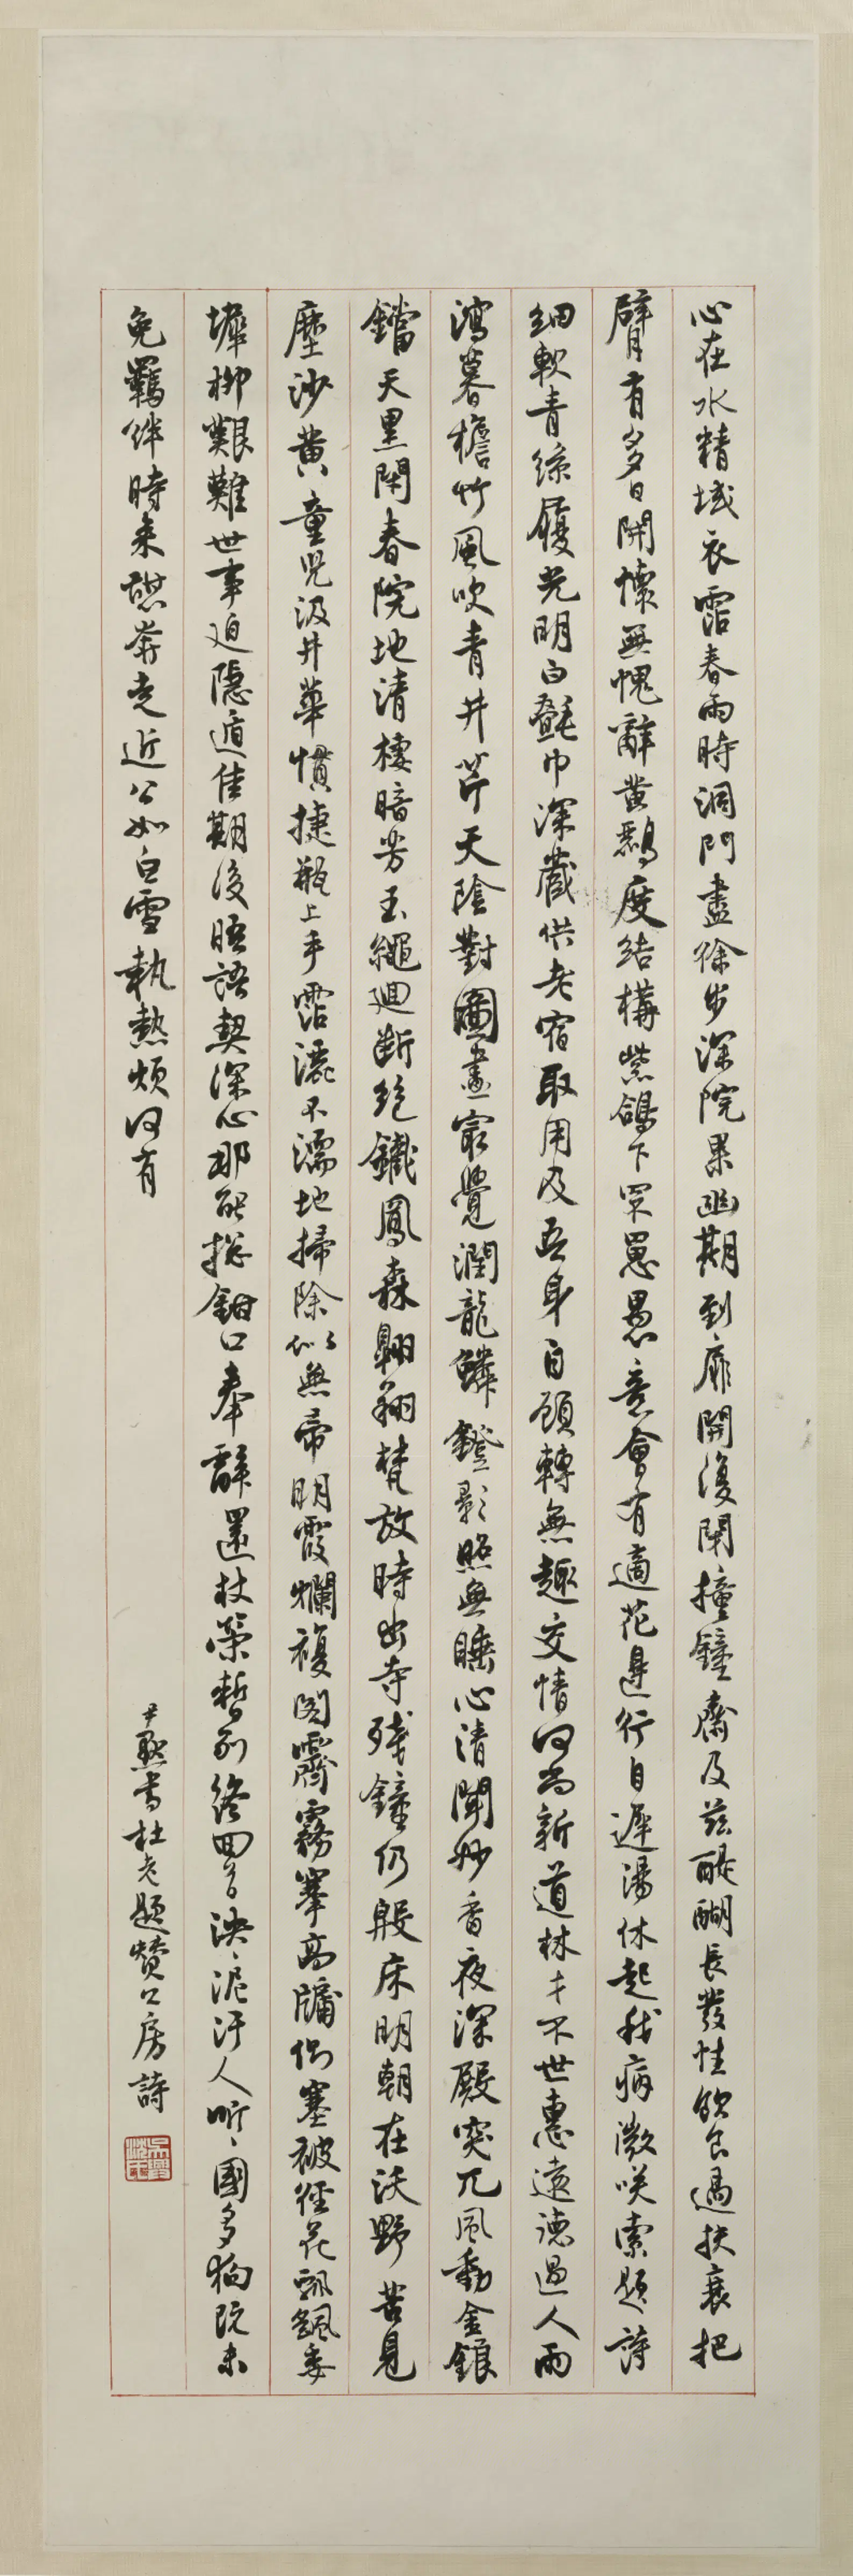 心在水精域衣霑春雨時洞門盡徐步深院果幽期到扉開復閉撞鐘齋及茲醍醐長發性飲食過扶衰把
臂有多日開懷無愧辭黃鸝度結構紫鴿下罘罳愚意會有適花邊行自遲湯休起我病微笑索題詩
細軟青絲履光明白㲲巾深藏供老宿取用及吾身自顧轉無趣交情何尚新道林才不世惠遠德過人雨
瀉暮檐竹風吹青井芹天陰對圖畫最覺潤龍鱗鐙影照無睡心清聞妙香夜深殿突兀風動金鋃
鐺天黑閉春院地清棲暗芳玉繩迴斷絕鐵鳳森翱翔梵放時出寺殘鐘仍殷床明朝在沃野苦見
塵沙黃童兒汲井華慣捷瓶上手霑灑不濡地掃除似無帚明霞爛複閣霽霧搴高牖側塞被徑花飄颻委
墀柳艱難世事迫隱遁佳期後晤語契深心那能總鉗口奉辭還杖策暫別終回首泱、泥汙人听、國多狗既未
免羈絆時來憩奔走近公如白雪執熱煩何有
尹默書杜老題贊公房詩